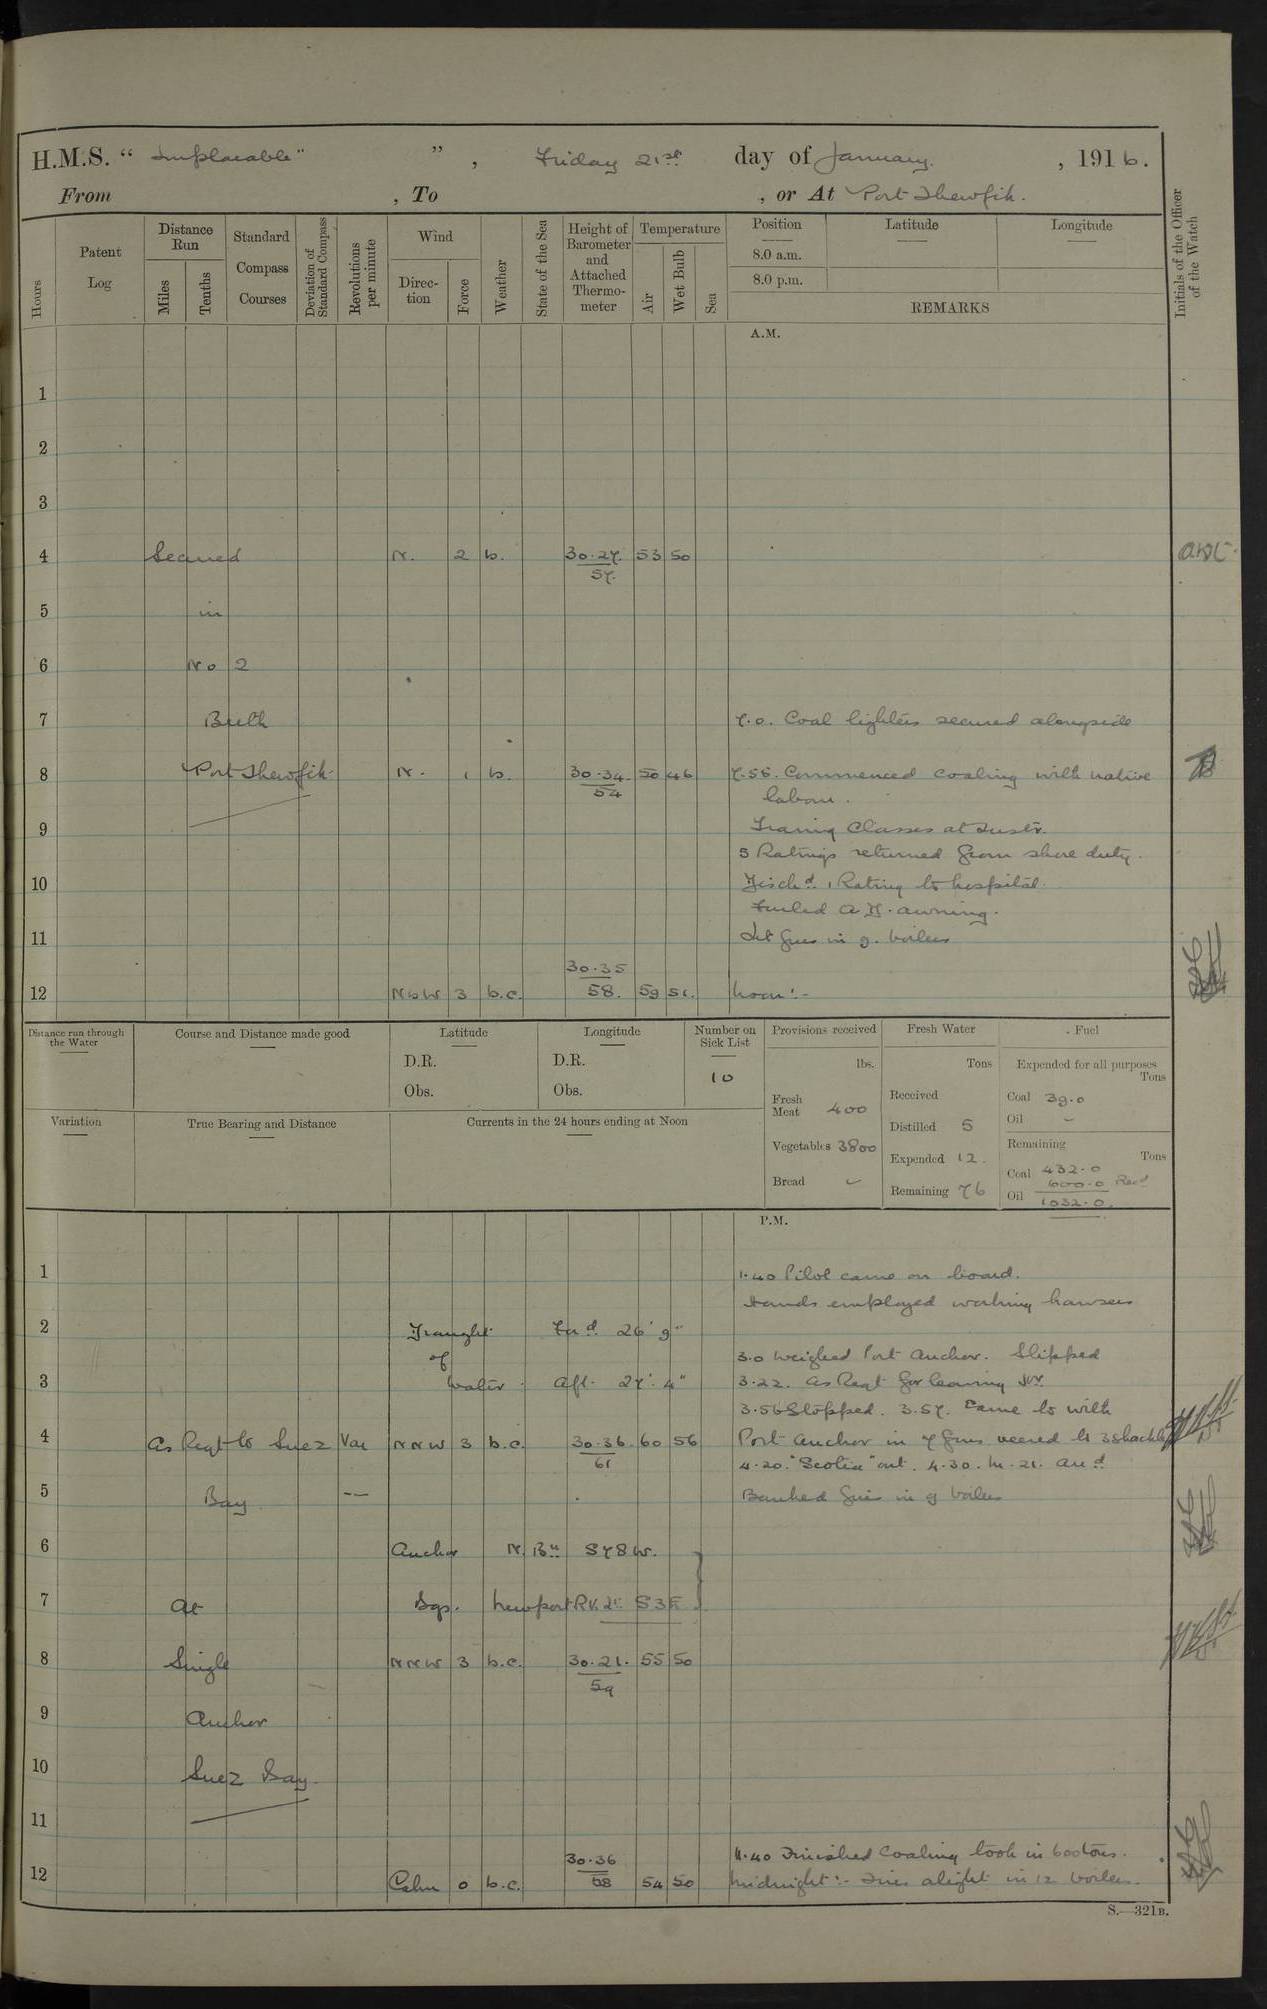 H.M.S. " Implacable " , Friday 21st day of January. , 1916.
From , To , or At Port Thewfik.
Hours
Patent Log
Distance Run
Miles
Tenths
Standard Compass Courses
Deviation of Standard Compass
Revolutions per minute
Wind
Direction
Force
Weather
State of the Sea
Height of Barometer and Attached Thermometer
Temperature
Air
Wet Bulb
Sea
Position
8.0 a.m.
8.0 p.m.
Latitude
Longitude
REMARKS
Initials of the Officer of the Watch
A.M.
1
2
3
4 Secured N. 2 b. 30.27. 53 50
57.
5 in
6 No 2
7 Berth 7.0. Coal lighters secured alongside
8 Port Thewfik. N. 1 b. 30.34. 50 46 7.56. Commenced coaling with native
54 labour.
9 Traing Classes at Instr.
5 Ratings returned from shore duty.
10 Disch'd. 1 Rating to hospital.
Furled A.D. awning.
11 Lit fires in 9. boilers
30.35
12 NbW 3 b.c. 58. 59 51. Noon:-
Distance run through the Water
Course and Distance made good
Latitude
D.R.
Obs.
Longitude
D.R.
Obs.
Number on Sick List
10
Provisions received
lbs.
Fresh Meat 400
Vegetables 3800
Bread
Fresh Water
Tons
Received
Distilled 5
Expended 12.
Remaining 76
Fuel
Expended for all purposes
Tons
Coal 39.0
Oil –
Remaining
Tons
Coal 432.0
600.0 Recd
Oil 1032.0.
Variation
True Bearing and Distance
Currents in the 24 hours ending at Noon
P.M.
1 1.40 Pilot came on board.
Hands employed working hawsers
2 Draught For'd. 26' 9"
of 3.0 Weighed Port Anchor. Slipped
3 Water. Aft. 27' 4" 3.22. As Reqt for leaving
3.56 Stopped. 3.57. Came to with
4 As Reqt to Suez Var NNW 3 b.c. 30.36. 60 56 Port Anchor in 7 fms veered to 3 shackles
61 4.20. "Scotia" out. 4.30. M.21. Arr'd
5 Bay. Banked fires in 9 boilers
6 Anchor
7 At Bgs. Newport
8 Single NNW 3 b.c. 30.21. 55 50
59
9 Anchor
10 Suez Bay.
11
30.36 11.40 Finished Coaling took in 600 tons.
12 Calm 0 b.c. 58 54 50 Midnight:- Fires alight in 12 boilers.
S.—321B.